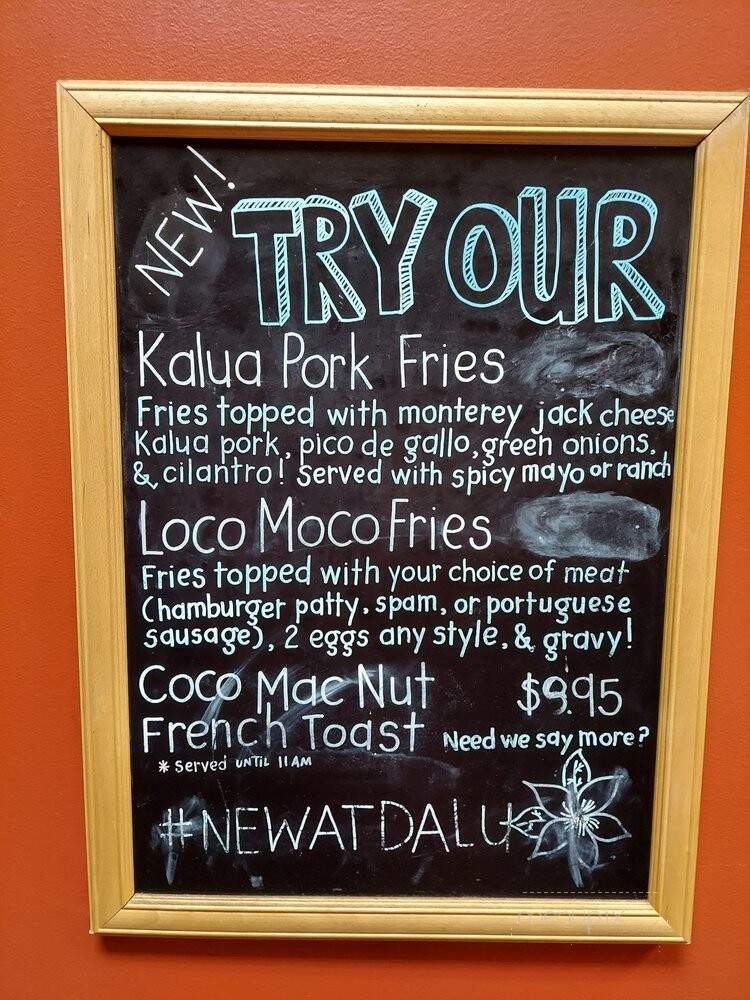 NEW!
TRY OUR
Kalua Pork Fries
Fries topped with monterey jack cheese
Kalua pork, pico de gallo, green onions,
& cilantro! Served with spicy mayo or ranch
Loco Moco Fries
Fries topped with your choice of meat
(hamburger patty, spam, or portuguese
sausage), 2 eggs any style, & gravy!
Coco Mac Nut $9.95
French Toast Need we say more?
* Served UNTIL 11AM
#NEWATDALUK